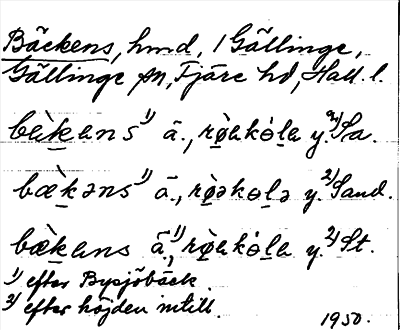 Bäckens, hmd, / Gällinge,
Gällinge sn, Fjäre hd, Hall. l.
bæ̀kens ¹⁾ ä., rø̀ekóla y. ²⁾ Sa.
bæ̀kəns ¹⁾ ä., rø̀əkolə y. ²⁾ Sand.
bæ̀kens ä., ¹⁾ rø̀ekóla y. ²⁾ St.
¹⁾ efter Bysjöbäck.
²⁾ efter höjden intill.
1950.